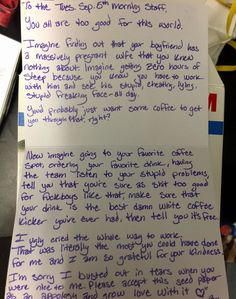 To the Tues. Sep. 6th morning Staff,
You all are too good for this world.
Imagine finding out that your boyfriend has
a massively pregnant wife that you knew
nothing about. Imagine getting zero hours of
sleep because you know you have to work
with him and see his stupid, cheating, lying,
stupid freaking face all day.
You'd probably just want some coffee to get
you through that, right?
Now imagine going to your favorite coffee
spot, ordering your favorite drink, having
the team listen to your stupid problems,
tell you that you're sure as shit too good
for fuckboys like that, make sure that
your drink is the best damn white coffee
kicker you've ever had, then tell you it's free.
I ugly cried the whole way to work.
That was literally the most you could have done
for me and I am so grateful for your kindness.
I'm sorry I busted out in tears when you
were nice to me. Please accept this seed paper
as an apology and grow love with it